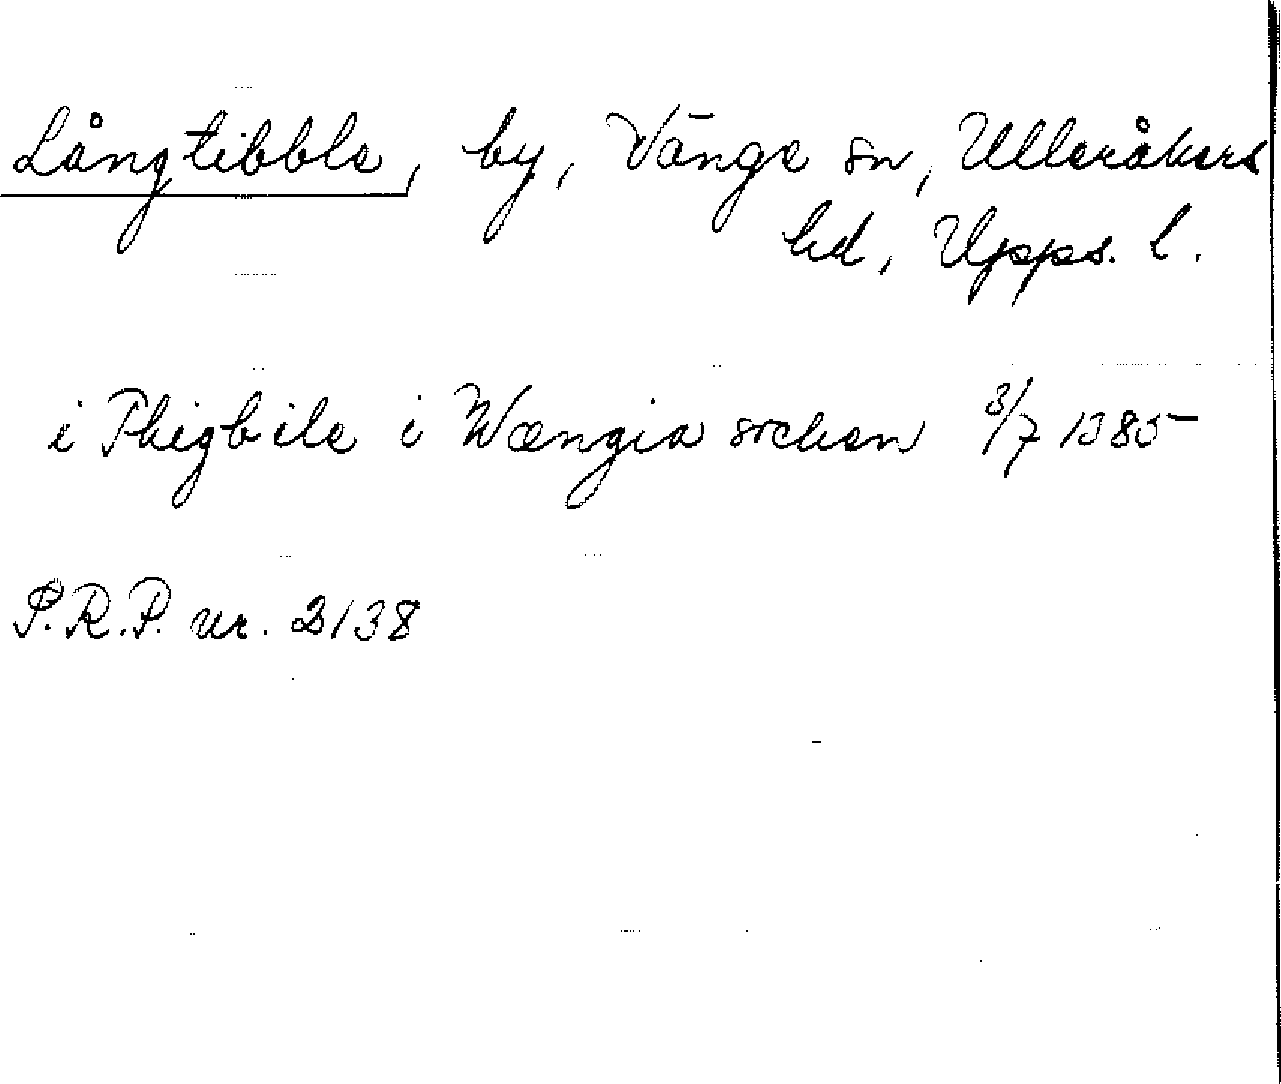 Långtibble, by, Vänge sn, Ulleråkers
hd, Upps. l.
i Thigbile i Wængia sochen 3/7 1385
P.R.P. nr. 2138